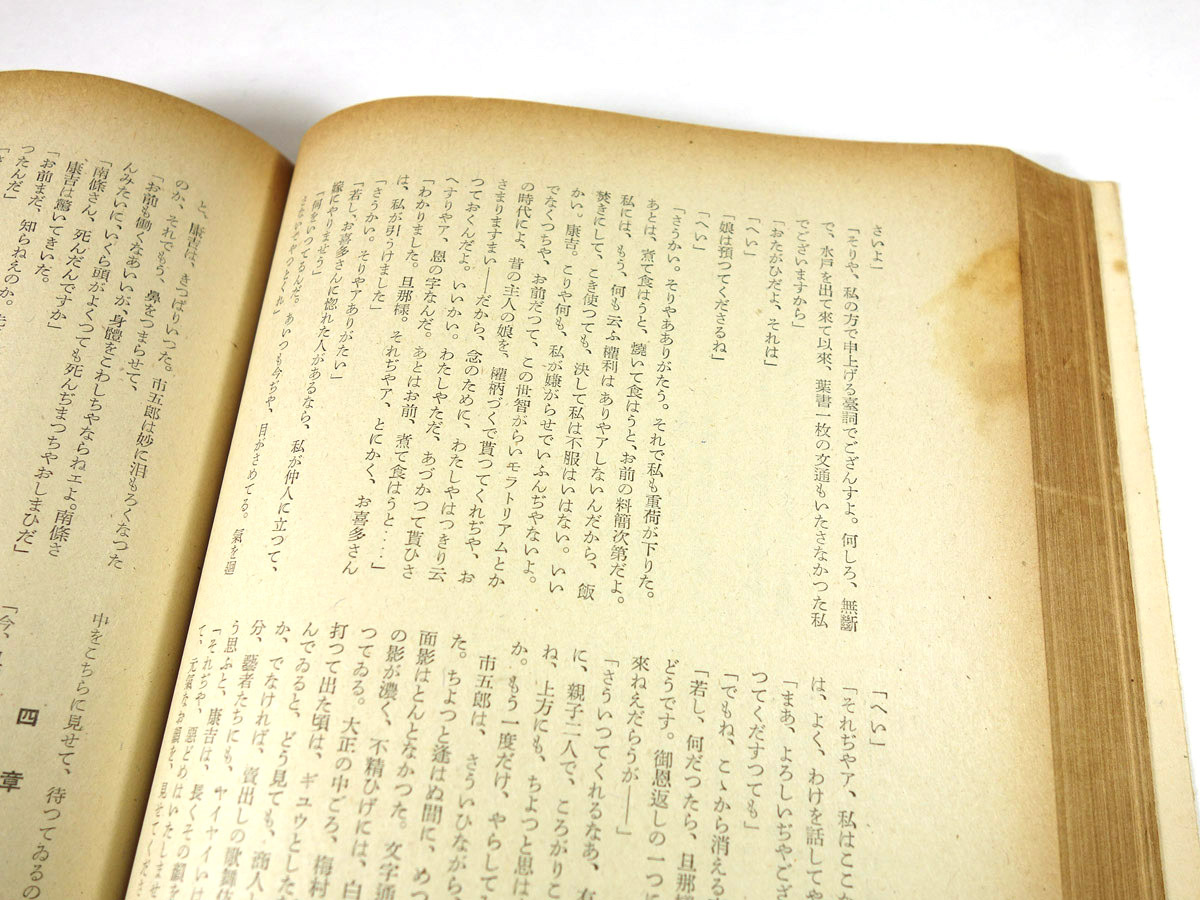 さいよ」
「そりや、私の方で申上げる臺詞でござんすよ。何しろ、無斷
で、水戸を出て來て以來、葉書一枚の文通もいたさなかつた私
でございますから」
「おたがひだよ、それは」
「へい」
「娘は預つてくださるね」
「へい」
「さうかい。そりやありがたう。それで私も重荷が下りた。
あとは、煮て食はうと、燒いて食はうと、お前の料簡次第だよ。
私には、もう、何も云ふ權利はありやアしないんだから、飯
焚きにして、こき使つても、決して私は不服はいはない。いい
かい。康吉。こりや何も、私が嫌がらせでいふんぢやないよ。
でなくつちや、お前だつて、この世智がらいモラトリアムとか
の時代によ、昔の主人の娘を、權柄づくで貰つてくれぢや、お
さまりますまい――だから、念のために、わたしやはつきり云
つておくんだよ。いいかい。わたしやただ、あづかつて貰ひさ
へすりやア、恩の字なんだ。あとはお前、煮て食はうと‥‥」
「わかりました。旦那樣。それぢやア、とにかく、お喜多さん
は、私が引うけました」
「さうかい。そりやアありがたい」
「若し、お喜多さんに惚れた人があるなら、私が仲人に立つて、
嫁にやりませう」
「何をいつてるんだ。あいつも今ぢや、目がさめてる。氣を廻
「へい」
「それぢやア、私はここ
は、よく、わけを話してや
「まあ、よろしいぢやござ
つてくだすつても」
「でもね、こゝから消える
「若し、何だつたら、旦那
どうです。御恩返しの一つに
來ねえだらうが――」
「さういつてくれるなあ、有
に、親子二人で、ころがりこ
ね、上方にも、ちよつと思は
か。もう一度だけ、やらして
市五郎は、さういひながら、
た。ちよつと逢はぬ間に、めつ
面影はとんとなかつた。文字通
の影が濃く、不精ひげには、白
つてゐる。大正の中ごろ、梅村
打つて出た頃は、ギユウとした
んでゐると、どう見ても、商人
か、でなければ、賣出しの歌舞伎
分、藝者たちにも、ヤイヤイいけ
う思ふと、康吉は、長くその顏を
「それぢや、惡どめはいたしませ
て、元氣なお顏を、見せてくださ
と、康吉は、きつぱりいつた。市五郎は妙に泪もろくなつた
のか、それでもう、鼻をつまらせて、
「お前も働くなあいいが、身體をこわしちやならねエよ。南條さ
んみたいに、いくら頭がよくつても死んぢまつちやおしまひだ」
「南條さん、死んだんですか」
康吉は驚いてきいた。
「お前まだ、知らねえのか。
つたんだ」
中をこちらに見せて、待つてゐるの
四章
「今、